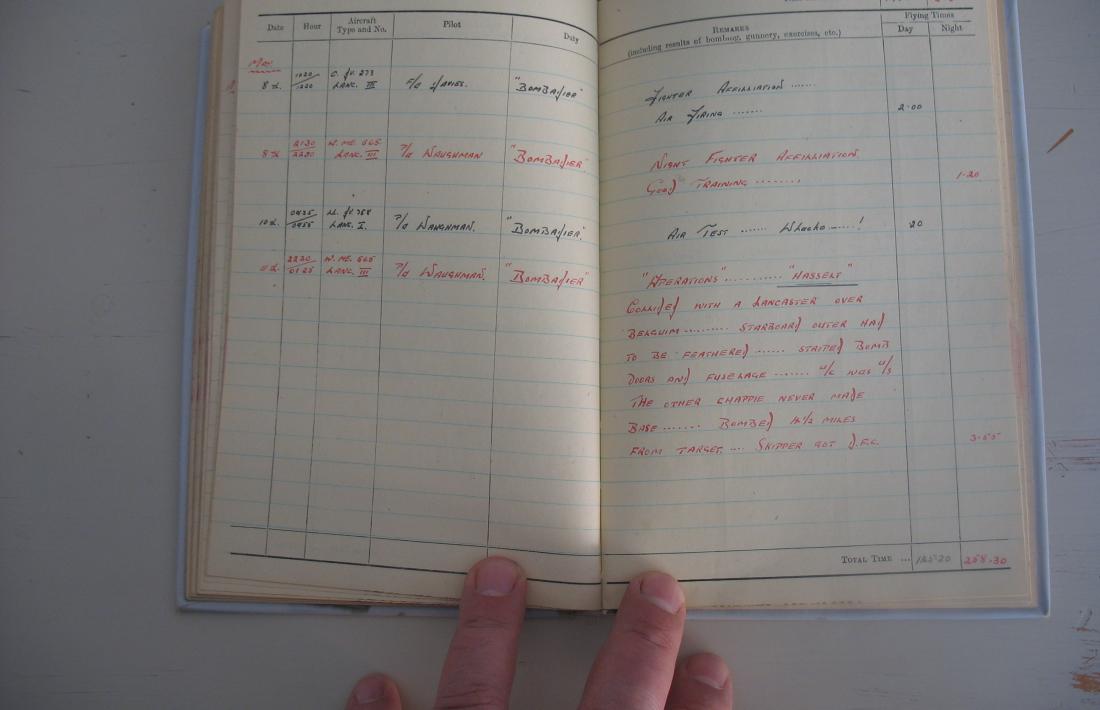 Date Hour Aircraft Type and No. Pilot Duty
REMARKS
(including results of bombing, gunnery, exercises, etc.)
Flying Times
Day Night
May
8th. 1020/1220 LANC. III F/O DAVIES. "BOMBADIER"
FIGHTER AFFILLIATION ......
AIR FIRING ....... 2.00
8th 2130/2250 W. ME. 565 LANC. III P/O WAUGHMAN "BOMBADIER"
NIGHT FIGHTER AFFILLIATION.
GOOD TRAINING ........ 1.20
10th. 0435/0455 LANC. I. P/O WAUGHMAN. "BOMBADIER"
AIR TEST ....... Whacko ......! 20
11th. 2230/0125 W. ME 565 LANC. III P/O WAUGHMAN. "BOMBADIER"
"OPERATIONS" ........... "HASSELT"
COLLIDED WITH A LANCASTER OVER
BELGUIM ......... STARBOARD OUTER HAD
TO BE FEATHERED ...... STRIPED BOMB
DOORS AND FUSELAGE ....... U/C WAS U/S
THE OTHER CHAPPIE NEVER MADE
BASE ....... BOMBED 1½ MILES
FROM TARGET .... SKIPPER GOT D.F.C. 3.55
TOTAL TIME ... 258.30